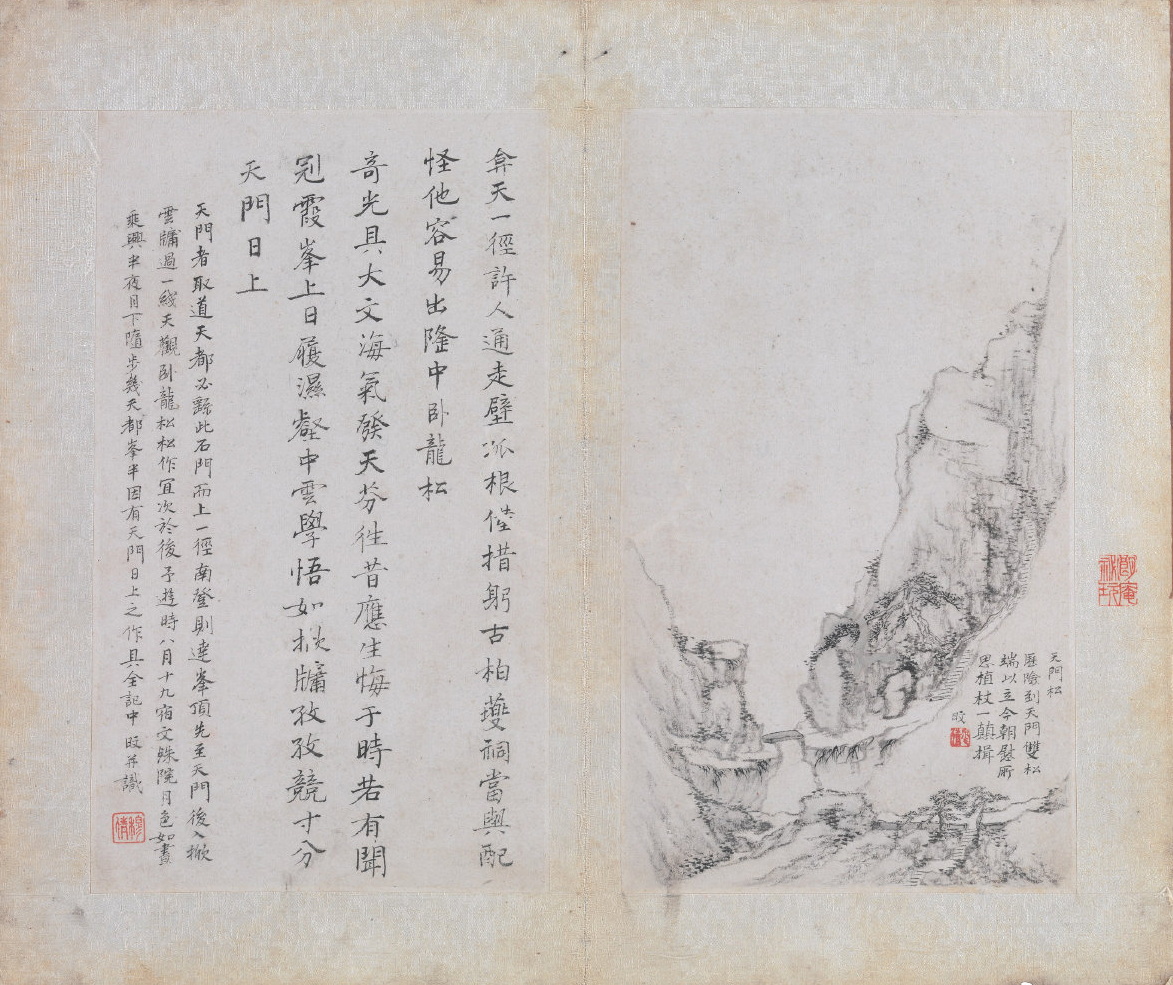 天門松
歷險到天門雙松
端以立今朝慰所
思植杖一顛揖
旼
弇天一徑許人通走壁孤根倦措躬古柏夔祠當與配
怪他容易出隆中臥龍松
奇光具大文海氣發天芬徃昔應生悔于時若有聞
冠霞峯上日履濕壑中雲學悟如掀牖孜孜競寸分
天門日上
天門者取道天都必繇此石門而上一徑南登則達峯頂先至天門後入掀
雲牖過一綫天觀臥龍松松作宜次於後予遊時八月十九宿文殊院月色如晝
乘興半夜月下隨步幾天都峯半因有天門日上之作具全記中旼并識
穆倩